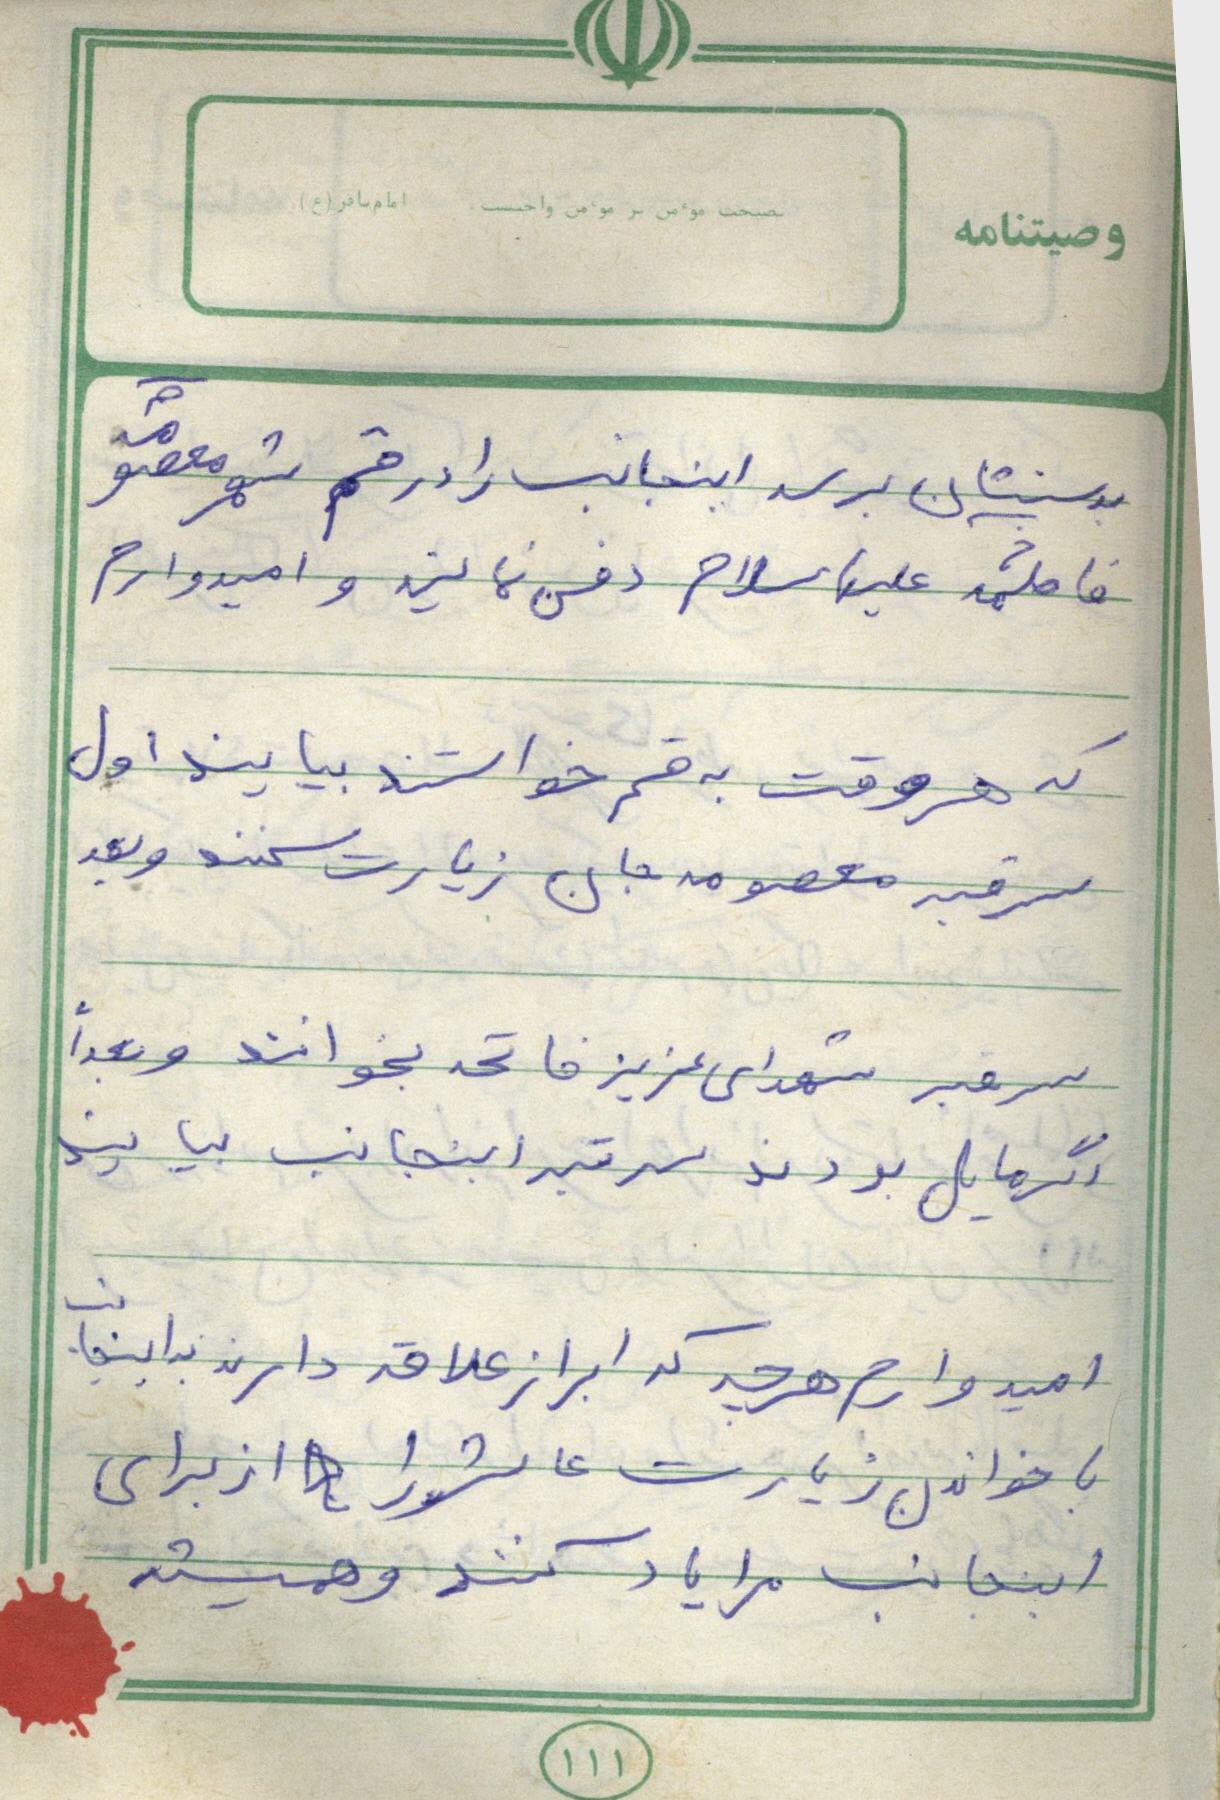 وصیتنامه
نصیحت موءمن بر موءمن واجبست. امام باقر(ع)
بدستشان برسد اینجانب را در قم شهر معصومه
فاطمه علیهاسلام دفن نمائید و امیدوارم
که هروقت به قم خواستند بیایند اول
سر قبر معصومه جان زیارت کنند وبعد
سر قبر شهدای عزیز فاتحه بخوانند و بعداً
اگر مایل بودند سر قبر اینجانب بیایند
امیدوارم هرچه که ابراز علاقه دارند به اینجانب
با خواندن زیارت عاشورا از برای
اینجانب مرا یاد کنند و همیشه
۱۱۱